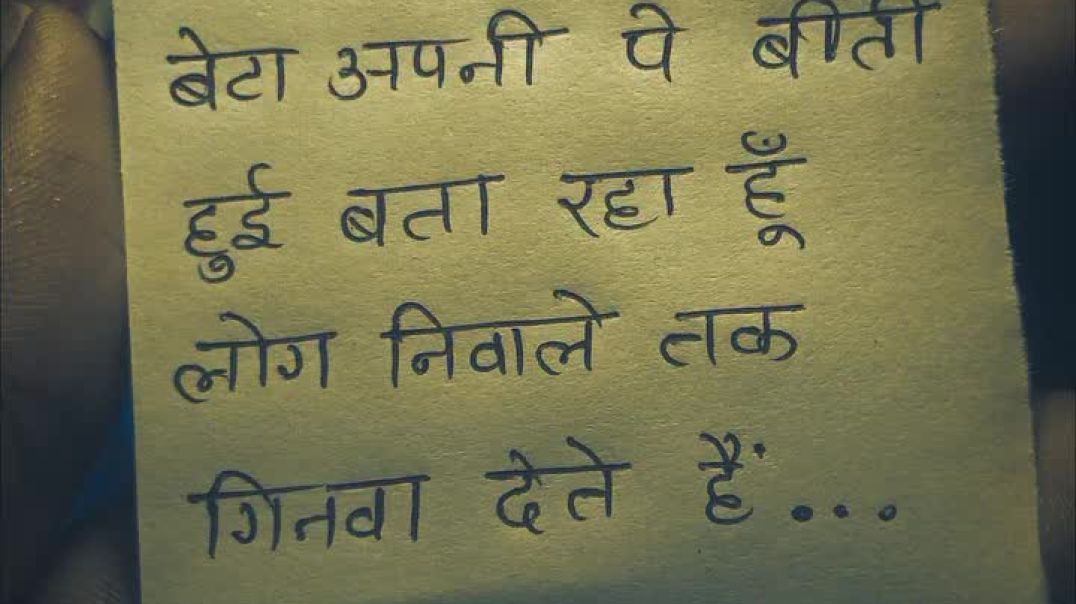 बेटा अपनी पे बीती
हुई बता रहा हूँ
लोग निवाले तक
गिनवा देते हैं...